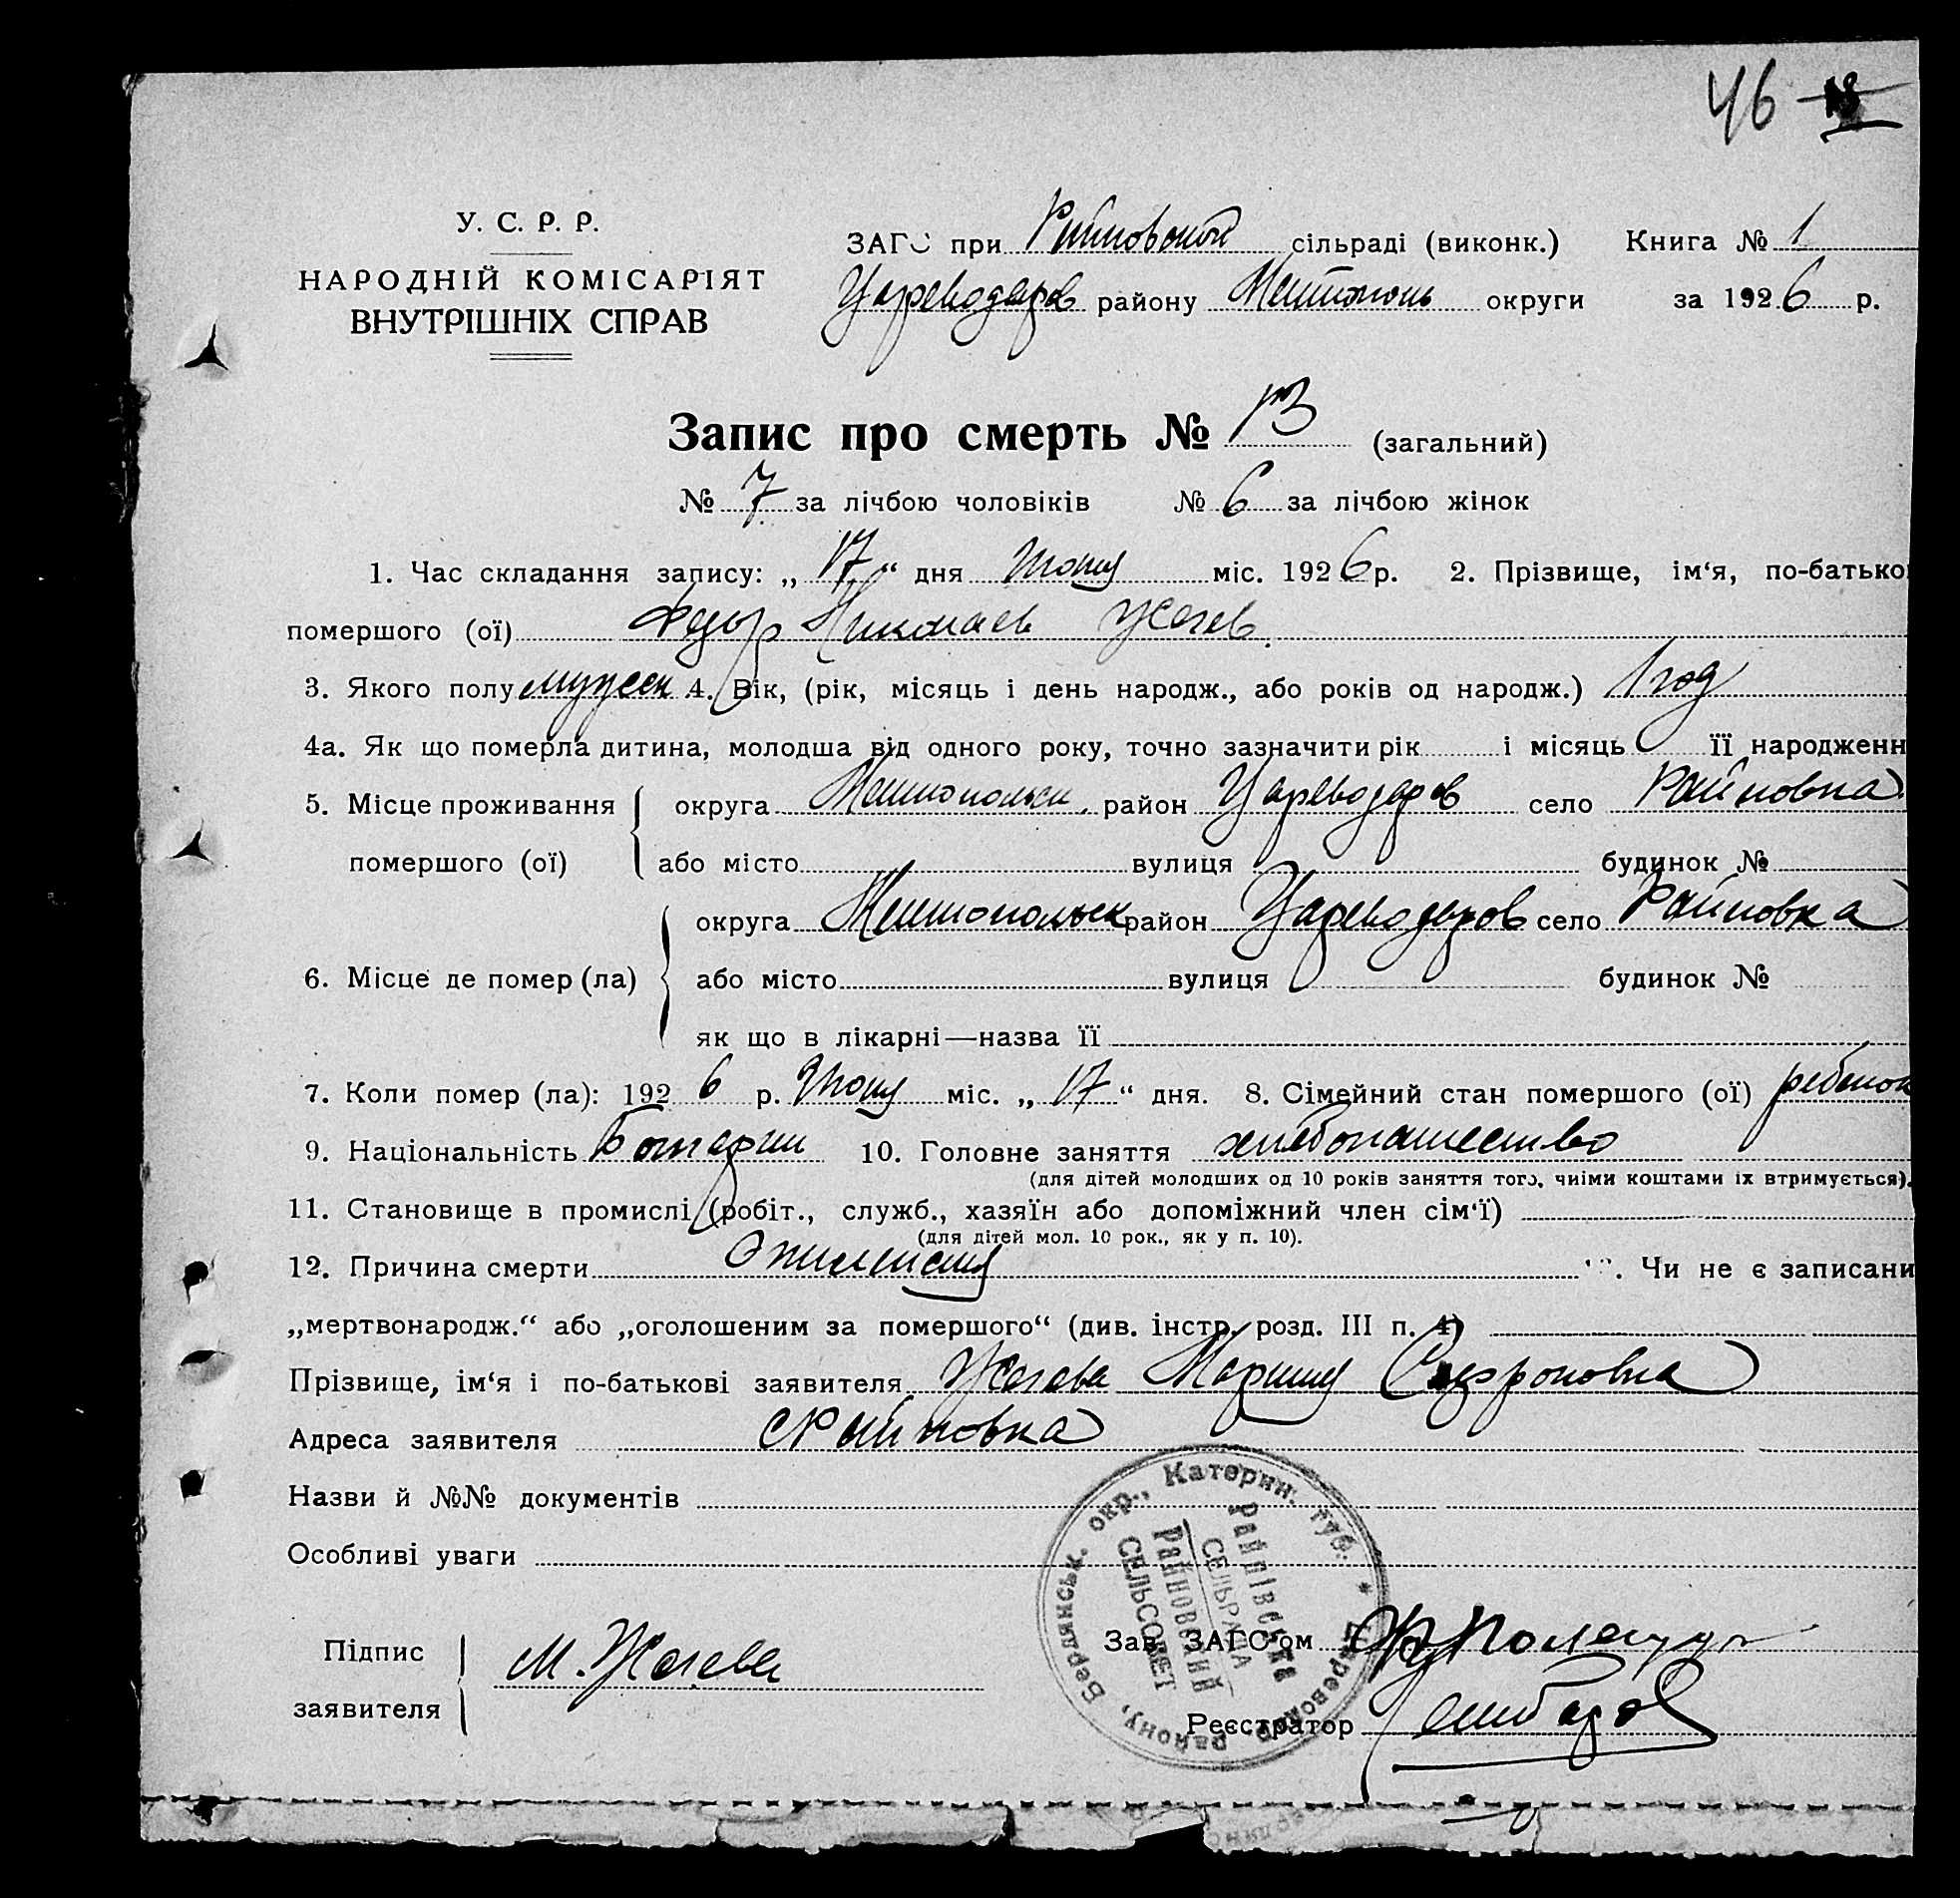 46
У. С. Р. Р.
НАРОДНІЙ КОМІСАРІЯТ
ВНУТРІШНІХ СПРАВ
ЗАГС при Райновской сільраді (виконк.) Книга № 1
Цареводаров району Мелитополь округи за 1926 р.
Запис про смерть № 13 (загальний)
№ 7 за лічбою чоловіків № 6 за лічбою жінок
1. Час складання запису: „17“ дня Июня міс. 1926 р. 2. Прізвище, ім‘я, по-батько
помершого (ої) Федор Николаев Жегев
3. Якого полу мужеск 4. Вік, (рік, місяць і день народж., або років од народж.) 1 год
4а. Як що померла дитина, молодша від одного року, точно зазначити рік і місяць її народженн
5. Місце проживання округа Мелитопольск. район Цареводаров село Райновка
помершого (ої) або місто вулиця будинок №
округа Мелитопольск район Цареводаров село Райновка
6. Місце де помер (ла) або місто вулиця будинок №
як що в лікарні—назва її
7. Коли помер (ла): 1926 р. Июня міс. „17“ дня. 8. Сімейний стан помершого (ої) ребенок
9. Національність Болгарин 10. Головне заняття хлебопашество
(для дітей молодших од 10 років заняття того, чиіми коштами їх втримується).
11. Становище в промислі (робіт., служб., хазяїн або допоміжний член сім‘ї)
(для дітей мол. 10 рок., як у п. 10).
12. Причина смерти Эпилепсия . Чи не є записани
„мертвонародж.“ або „оголошеним за помершого“ (див. інстр. розд. III п. 4)
Прізвище, ім‘я і по-батькові заявителя Жегева Мария
Адреса заявителя с Райновка
Назви й №№ документів
Особливі уваги
Підпис
заявителя М. Жегева
Зав. ЗАГС‘ом
Реєстратор
Бердянськ. окр., Катерин. губ. * Царевод. району,
Райнівська
СЕЛЬРАДА
Райновский
СЕЛЬСОВЕТ